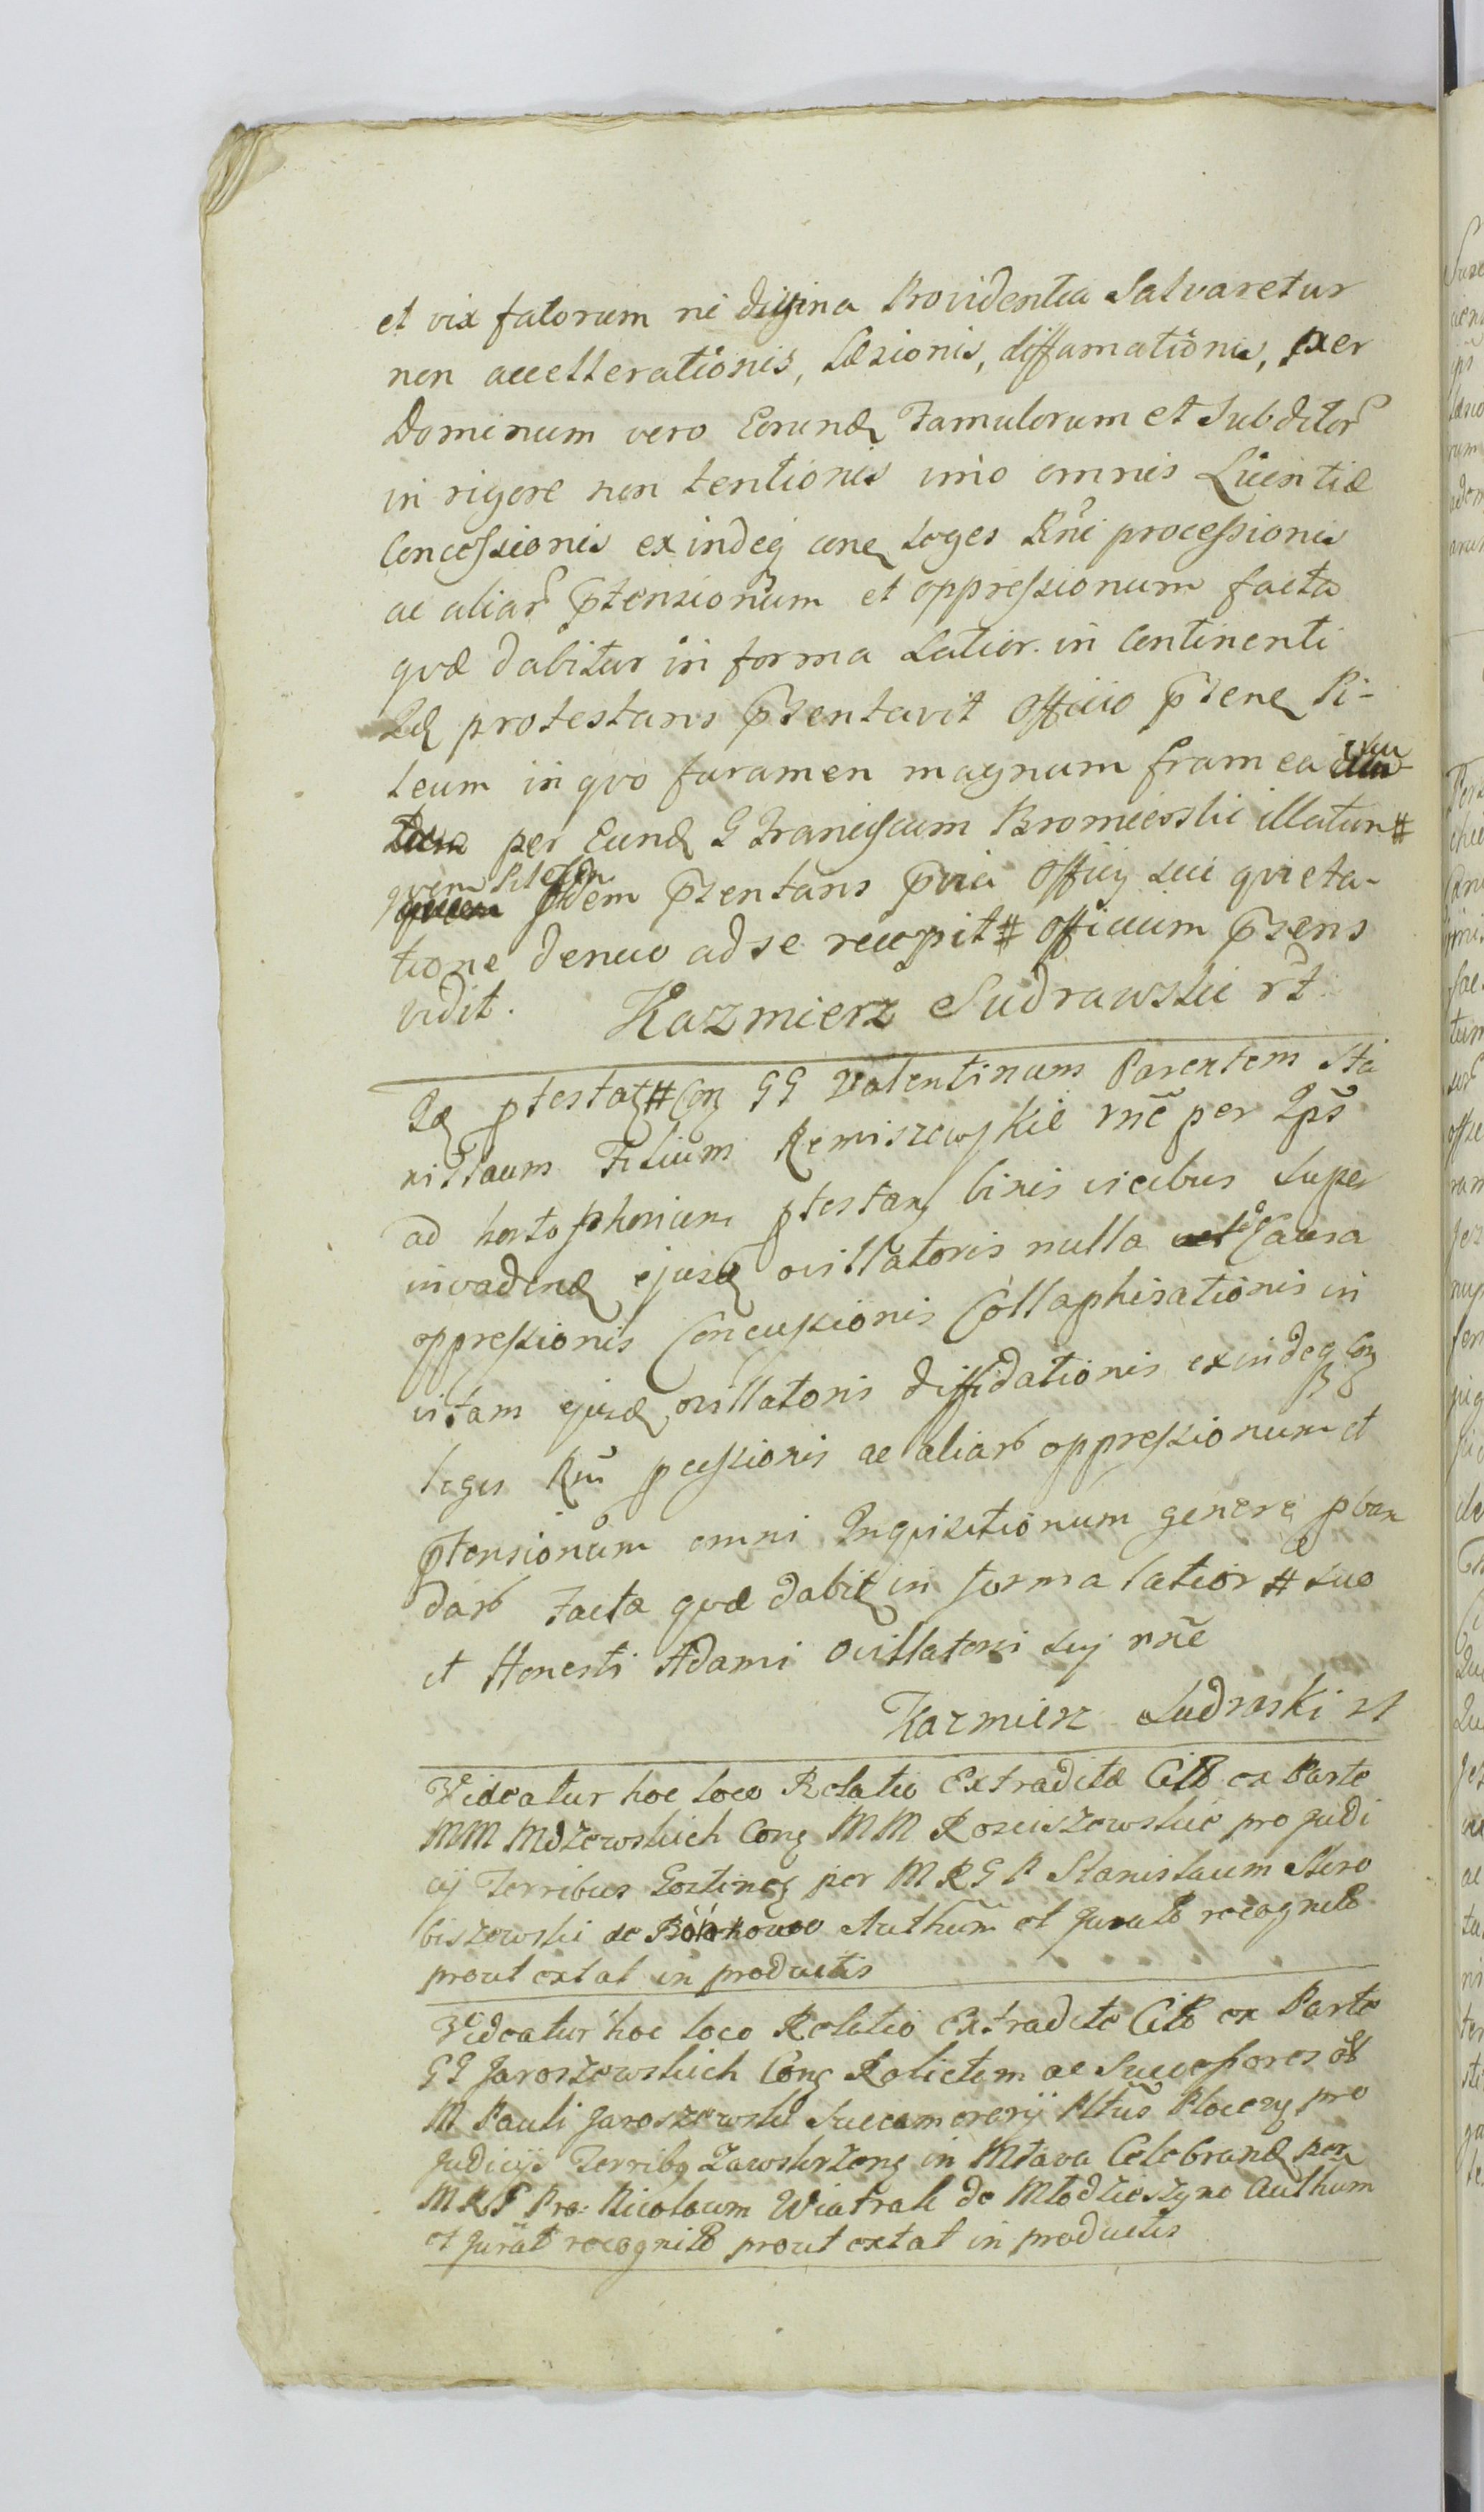 et vix fatorum ni divina Providentia Salvaretur
non accellerationis, Læsionis, diffamationis, per
Dominum vero Eorundꝫ Famulorum et Subditor
in rigore non tentionis imo omnis Licentiæ
Concessionis exindeqꝫ conꝫ Leges Rni processionis
ac aliar p̄tensionum et oppressionum facta
quæ dabitur in forma Latior. in Continenti
Idꝫ protestans p̄sentavit Officio p̄senꝫ Pi-
leum in quo foramen magnum framea
per Eundꝫ G Franciscum Bromierski illatum #
quem Pileum idem p̄sentans p̄via Officij sui quieta-
tione denuo ad se recepit # Officium p̄sens
vidit. Kazmierz Sudrawski rt
Idꝫ ptestatꝫ # Conꝫ GG Valentinum Parentem Sta
nislaum Filium Remiszewskie rne per Ips
ad hortophorium ptestanꝫ binis vicibus super
invadendꝫ ejusdꝫ ovillatoris nulla de Causa
oppressionis Concussionis Collaphisationis in
vitam ejusdꝫ ovillatoris diffidationis exindeqꝫ Conꝫ
leges Rni pcessionis ac aliar oppressionum et
ptensionum omni Inquisitionum genere pban
dar Facta quæ dabitꝫ in forma latior # suo
et Honesti Adami Ovillatoris suj rne
Kazmierz Sudraski rt
Videatur hoc loco Relatio Extraditæ Citt ex Parte
MM Mdzewskich Conꝫ MM Kosciszewskie pro Judi
cij Terribus Gostinenꝫ per M R G P Stanislaum Skro
biszewski de Authum et Jurato recognitt
prout extat in productis
Videatur hoc loco Relatio Extraditæ Citt ex Parte
GG Jaroszewskich Conꝫ Relictam ac Successores olt
M Pauli Jaroszewski Succamerarij Pltūs Plocezꝫ pro
Judicijs Terribꝫ Zawskrzenꝫ in Mława Celebrandꝫ per
M R G Pro: Nicolaum Wiatrak de Młodzieszyno Authum
et Jurat recognitt prout extat in productis